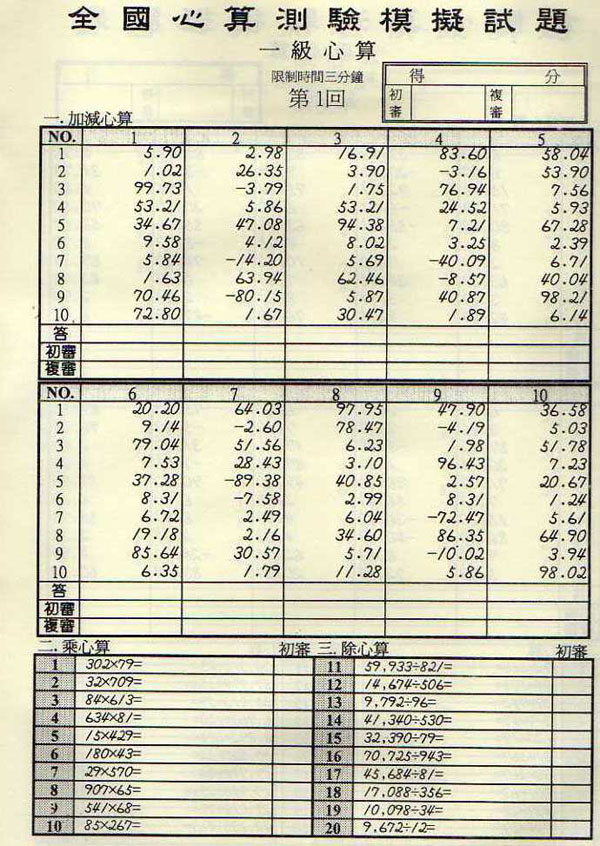 全國心算測驗模擬試題
一級心算
限制時間三分鐘
第1回
得 分
初審 複審
一. 加減心算
NO. 1 2 3 4 5
1 5.90 2.98 16.91 83.60 58.04
2 1.02 26.35 3.90 -3.16 53.90
3 99.73 -3.79 1.75 76.94 7.56
4 53.21 5.86 53.21 24.52 5.93
5 34.67 47.08 94.38 7.21 67.28
6 9.58 4.12 8.02 3.25 2.39
7 5.84 -14.20 5.69 -40.09 6.71
8 1.63 63.94 62.46 -8.57 40.04
9 70.46 -80.15 5.87 40.87 98.21
10 72.80 1.67 30.47 1.89 6.14
答
初審
複審
NO. 6 7 8 9 10
1 20.20 64.03 97.95 47.90 36.58
2 9.14 -2.60 78.47 -4.19 5.03
3 79.04 51.56 6.23 1.98 51.78
4 7.53 28.43 3.10 96.43 7.23
5 37.28 -89.38 40.85 2.57 20.67
6 8.31 -7.58 2.99 8.31 1.24
7 6.72 2.49 6.04 -72.47 5.61
8 19.18 2.16 34.60 86.35 64.90
9 85.64 30.57 5.71 -10.02 3.94
10 6.35 1.79 11.28 5.86 98.02
答
初審
複審
二. 乘心算 初審 三. 除心算 初審
1 302×79= 11 59,933÷821=
2 32×709= 12 14,674÷506=
3 84×613= 13 9,792÷96=
4 634×81= 14 41,340÷530=
5 15×429= 15 32,390÷79=
6 180×43= 16 70,725÷943=
7 29×570= 17 45,684÷81=
8 907×65= 18 17,088÷356=
9 541×68= 19 10,098÷34=
10 85×267= 20 9,672÷12=